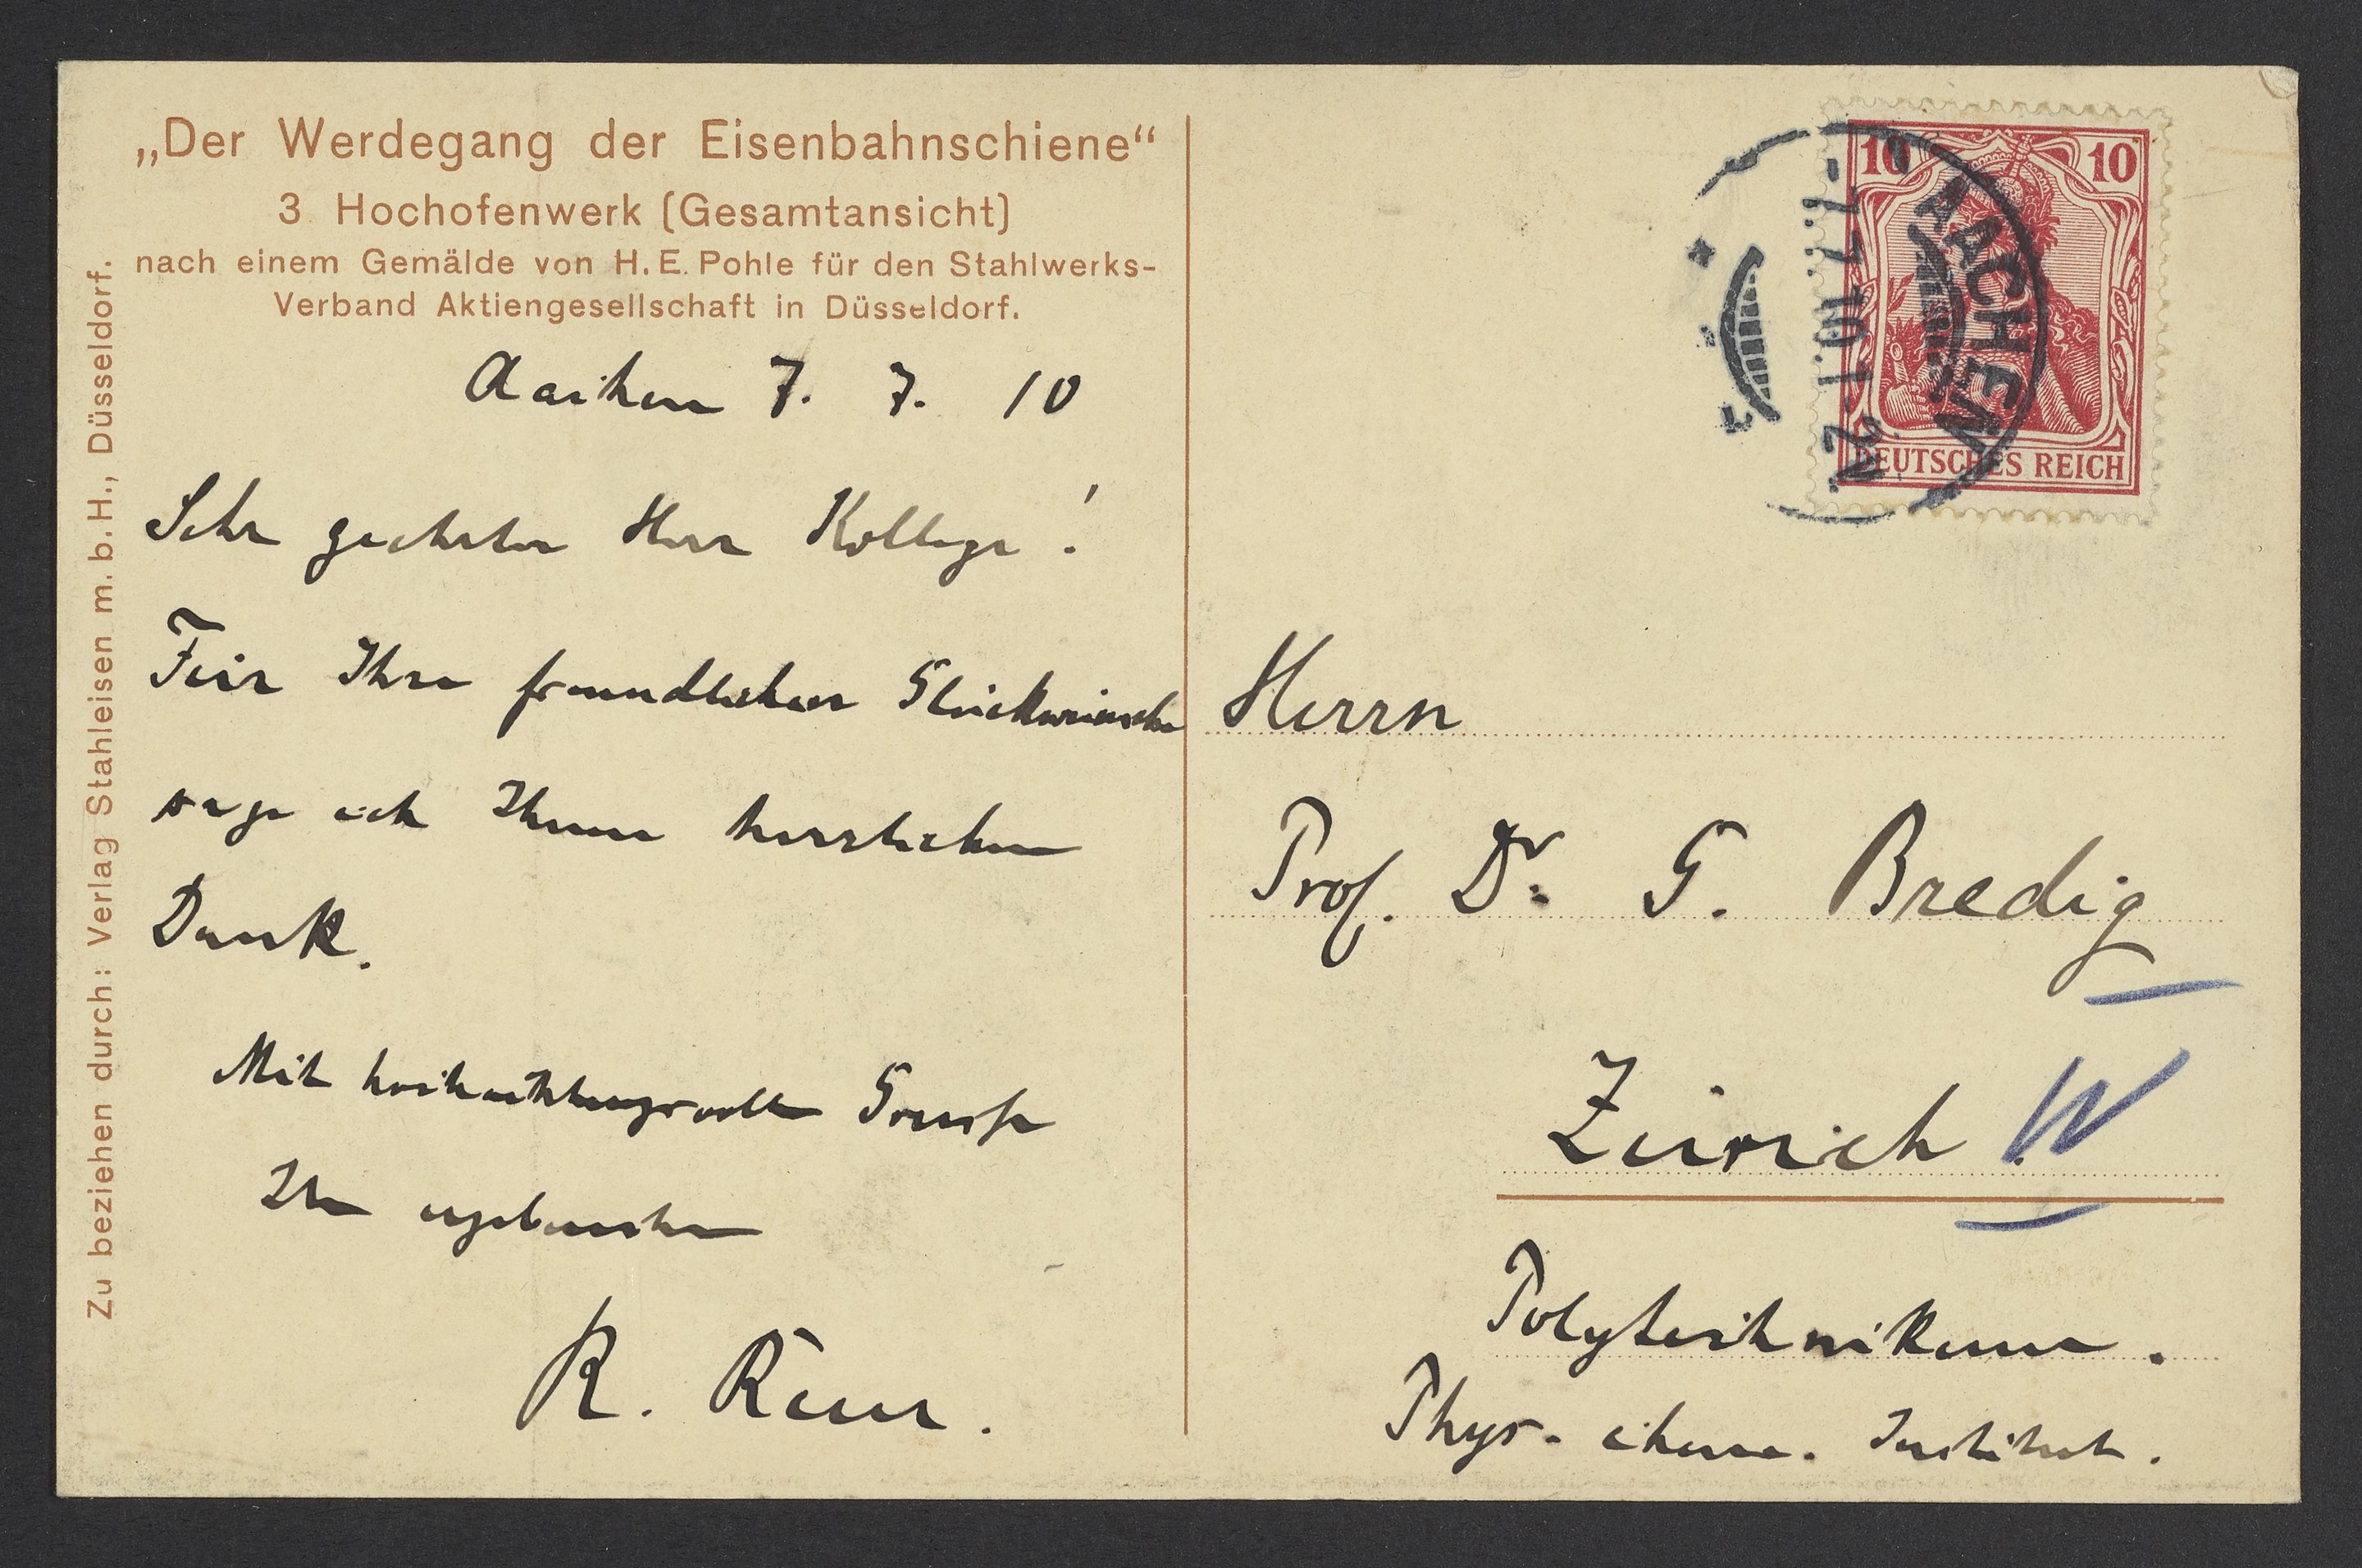 „Der Werdegang der Eisenbahnschiene“
3. Hochofenwerk (Gesamtansicht)
nach einem Gemälde von H. E. Pohle für den Stahlwerks-
Verband Aktiengesellschaft in Düsseldorf.
Zu beziehen durch: Verlag Stahleisen m. b. H., Düsseldorf.
Aachen 7. 7. 10
Sehr geehrter Herr Kollege!
Für Ihre freundlichen Glückwünsche
sage ich Ihnen herzlichen
Dank.
Mit hochachtungsvollem Grusse
Ihr ergebenster
R.
10 10
DEUTSCHES REICH
AACHEN
-7.7.10.1-2N.
Herrn
Prof. Dr. G. Bredig
Zürich. W
Polytechnikum.
Phys. chem. Institut.